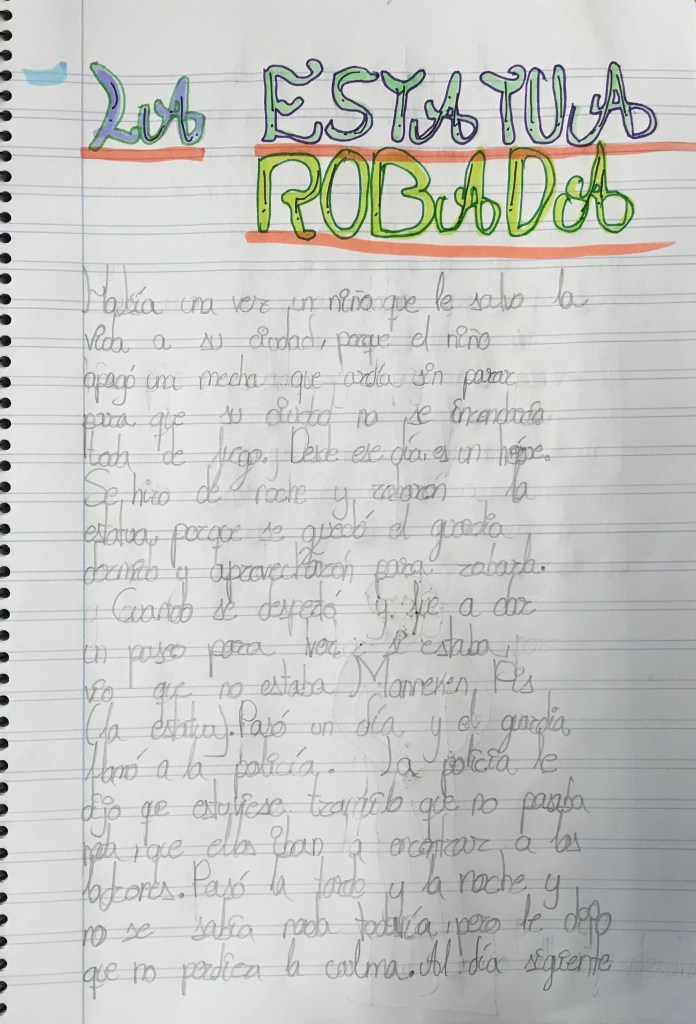 LA ESTATUA
ROBADA
Había una vez un niño que le salvo la
vida a su ciudad, porque el niño
apagó una mecha que ardía sin parar
para que su ciudad no se incendiara
toda de fuego. Desde ese día, es un héroe.
Se hizo de noche y robarón la
estatua, porque se quedó el guardia
dormido y aprovecharón para robarla.
Cuando se despertó y fue a dar
un paseo para ver si estaba,
vio que no estaba Manneken Pis
(la estatua). Pasó un día y el guardia
llamó a la policía. La policía le
dijo qe estuviese tranquilo que no pasaba
nada, que ellos iban a encontrar a los
ladrones. Pasó la tarde y la noche y
no se sabía nada todavía, pero le dijo
que no perdiera la calma. Al día sigiente